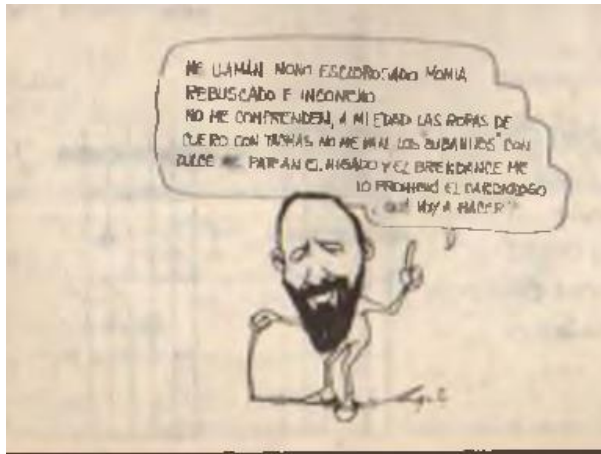 ME LLAMAN NONO ESCLOROSADO MOMIA
REBUSCADO E INCONEXO
NO ME COMPRENDEN, A MI EDAD LAS ROPAS DE
CUERO CON TACHAS NO ME VAN, LOS "BUBANITOS" CON
DULCE ME PATEAN EL HIGADO Y EL BREKDANCE ME
LO PROHIBIÓ EL CARDIOLOGO
¿QUÉ VOY A HACER?